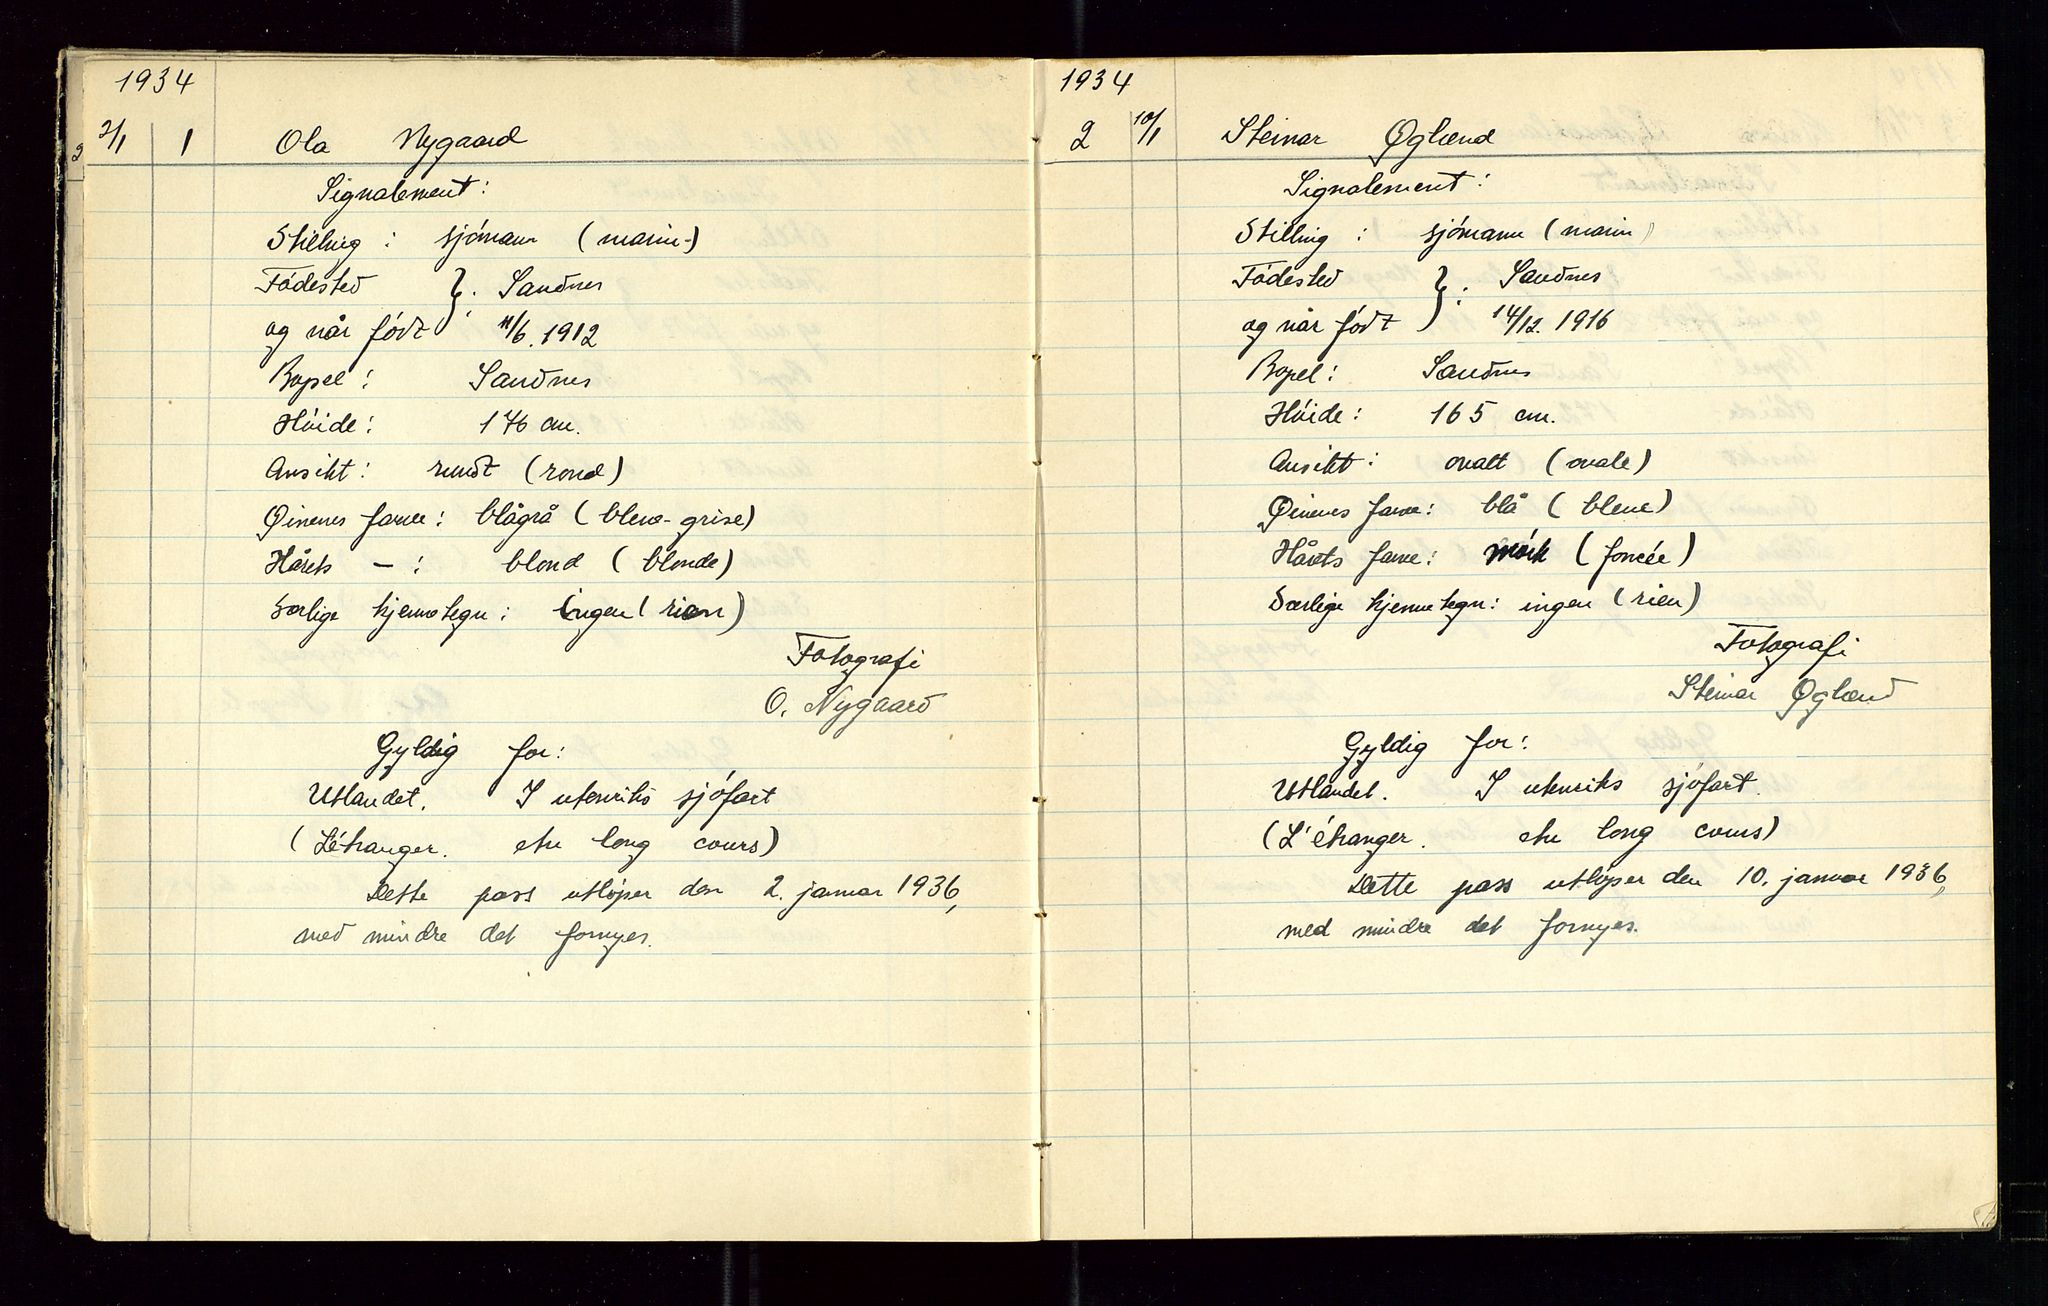 1934
2/1 1 Ola Nygaard
Signalement:
Stilling: sjómann (marin-)
Fódested } : Sandnes
og når fódt 11/6. 1912
Bopel: Sandnes
Hóide: 176 cm.
Ansikt: rundt (rond)
Øinenes farve: blågrå (bleue-grise)
Hårets — : blond (blonde)
Særlige kjennetegn: ingen (rien)
Fotografi
O. Nygaard
Gyldig for:
Utlandet. I utenriks sjófart
(L'étranger. long cours)
Dette pass utlóper den 2. januar 1936,
med mindre det fornyes.
1934
2 10/1 Steinar Øglænd
Signalement:
Stilling: sjómann (marin)
Fódested } : Sandnes
og når fódt 14/12. 1916
Bopel: Sandnes
Hóide: 165 cm.
Ansikt: ovalt (ovale)
Øinenes farve: blå (bleue)
Hårets farve: mórk (foncée)
Særlige kjennetegn: ingen (rien)
Fotografi
Steinar Øglænd
Gyldig for:
Utlandet. I utenriks sjófart.
(L'étranger. long cours)
Dette pass utlóper den 10. januar 1936,
med mindre det fornyes.